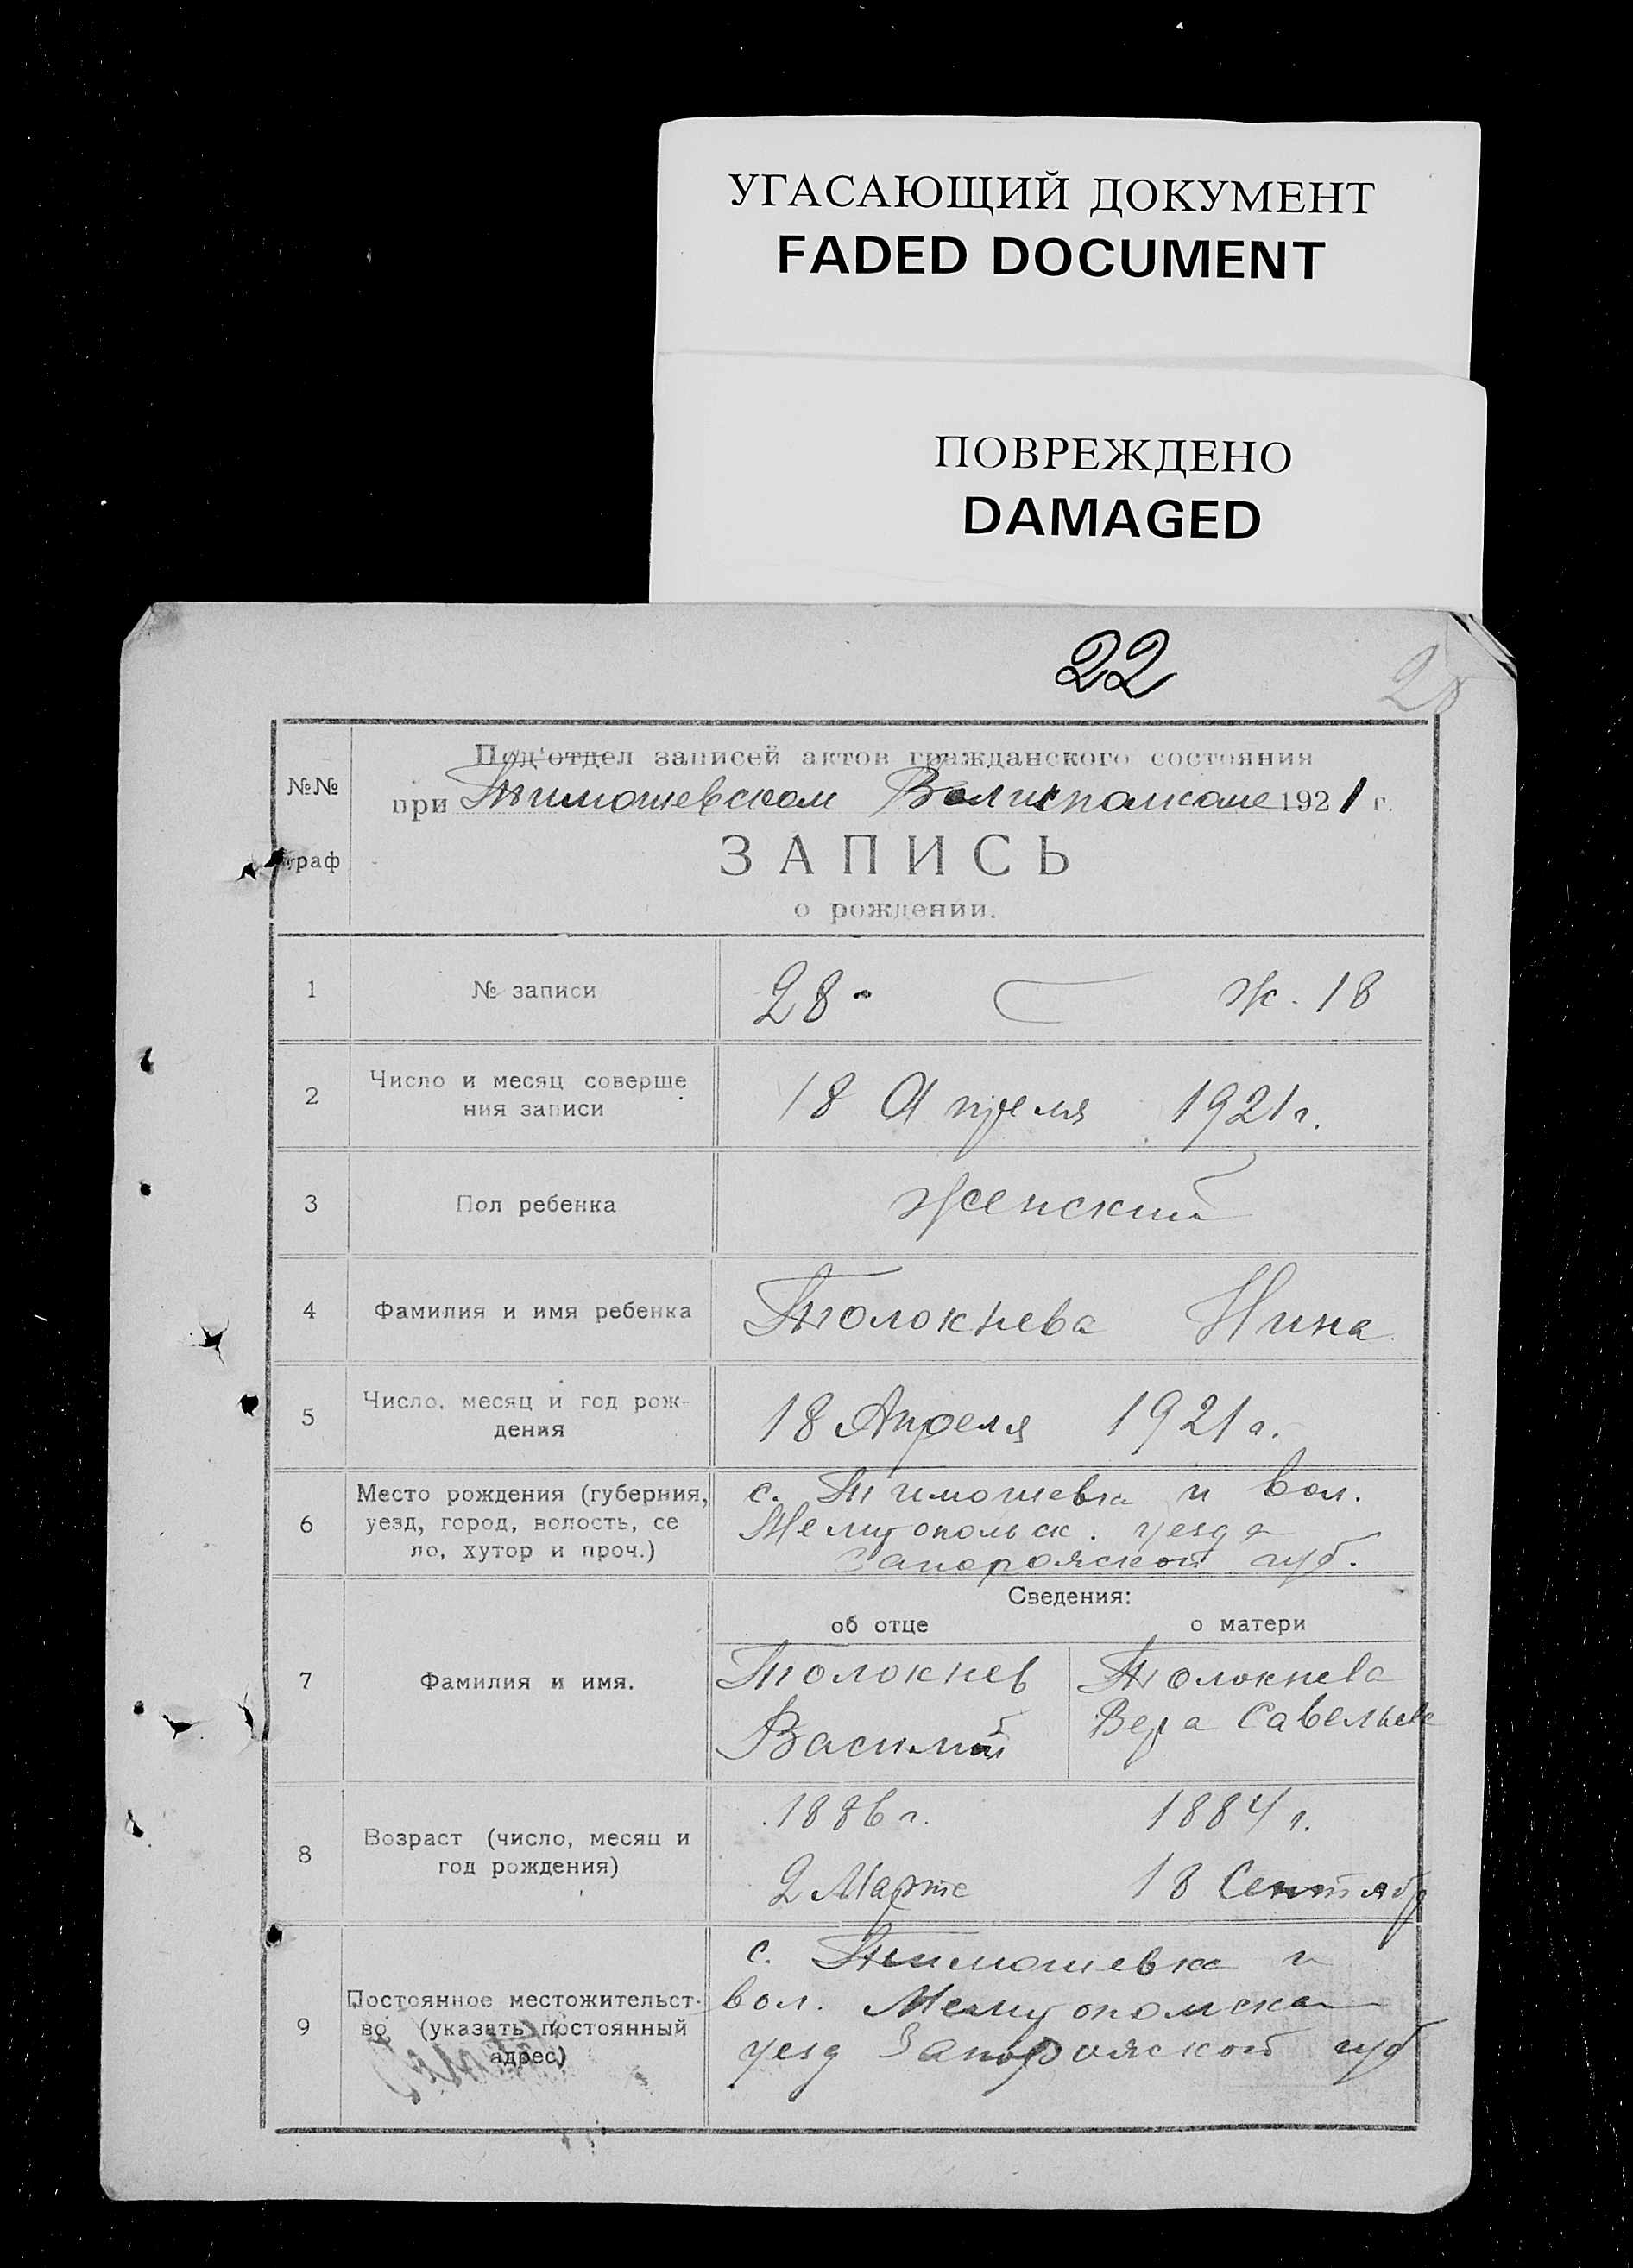 УГАСАЮЩИЙ ДОКУМЕНТ
FADED DOCUMENT
ПОВРЕЖДЕНО
DAMAGED
22
№№
граф
Под'отдел записей актов гражданского состояния
при Тимошевском Волисполкоме 1921 г.
ЗАПИСЬ
о рождении.
1 № записи 28 ж. 18
2 Число и месяц соверше
ния записи
18 Апреля 1921 г.
3 Пол ребенка Женский
4 Фамилия и имя ребенка Толокнева Нина
5 Число, месяц и год рож-
дения
18 Апреля 1921 г.
6 Место рождения (губерния,
уезд, город, волость, се
ло, хутор и проч.)
с. Тимошевка и вол.
Мелитопольск. уезда
Запорожской губ.
Сведения:
об отце о матери
7 Фамилия и имя.
Толокнев
Василий
Толокнева
Вера Савельев
8 Возраст (число, месяц и
год рождения)
1886 г. 1884 г.
2 Марта 18 Сентябр
9 Постоянное местожительст-
во (указать постоянный
адрес)
с. Тимошевка и
вол. Мелитопольска
уезд Запорожской губ